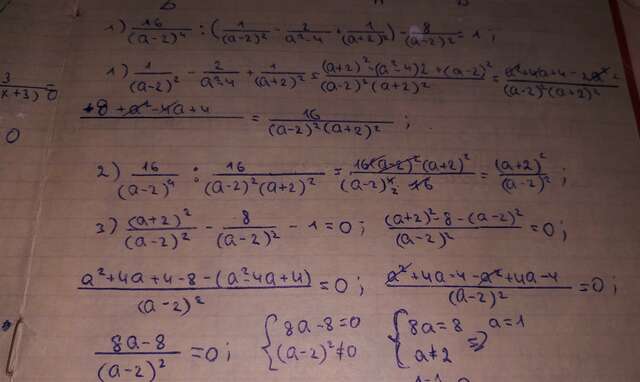 1) 16/(a-2)⁴ : (1/(a-2)² - 2/(a²-4) + 1/(a+2)²) - 8/(a-2)² = 1 ;
1) 1/(a-2)² - 2/(a²-4) + 1/(a+2)² = ((a+2)² - (a²-4)2 + (a-2)²)/((a-2)²(a+2)²) = (a²+4a+4-2a²+)/((a-2)²(a+2)²)
(+8+a²-4a+4)/ = 16/((a-2)²(a+2)²) ;
2) 16/(a-2)⁴ : 16/((a-2)²(a+2)²) = (16(a-2)²(a+2)²)/((a-2)⁴₂ 16) = (a+2)²/(a-2)² ;
3) (a+2)²/(a-2)² - 8/(a-2)² - 1 = 0 ; ((a+2)²-8-(a-2)²)/(a-2)² = 0 ;
(a²+4a+4-8-(a²-4a+4))/(a-2)² = 0 ; (a²+4a-4-a²+4a-4)/(a-2)² = 0 ;
(8a-8)/(a-2)² = 0 ; { 8a-8=0 (a-2)²≠0 { 8a=8 a≠2 => a=1
3
x+3) = 0
0